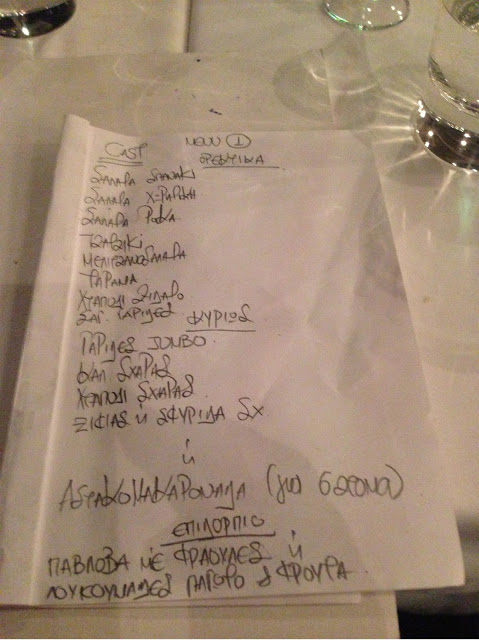 CAST MENU 1
ΟΡΕΚΤΙΚΑ
ΣΑΛΑΤΑ ΣΠΑΝΑΚΙ
ΣΑΛΑΤΑ
ΣΑΛΑΤΑ ΡΟΚΑ
ΤΖΑΤΖΙΚΙ
ΜΕΛΙΤΖΑΝΟΣΑΛΑΤΑ
ΤΑΡΑΜΑ
ΧΤΑΠΟΔΙ ΞΙΔΑΤΟ
ΣΑΓ. ΓΑΡΙΔΕΣ
ΚΥΡΙΩΣ
ΓΑΡΙΔΕΣ JUMBO
ΣΧΑΡΑΣ
ΧΤΑΠΟΔΙ ΣΧΑΡΑΣ
ΞΙΦΙΑΣ ή ΣΦΥΡΙΔΑ ΣΧ
ή
ΑΣΤΑΚΟΜΑΚΑΡΟΝΑΔΑ (για 6 άτομα)
ΕΠΙΔΟΡΠΙΟ
ΠΑΒΛΟΒΑ ΜΕ ΦΡΑΟΥΛΕΣ ή
ΛΟΥΚΟΥΜΑΔΕΣ ΠΑΓΩΤΟ & ΦΡΟΥΤΑ